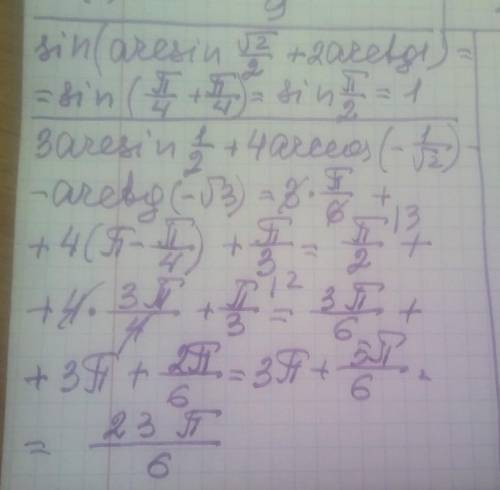 sin(arcsin √2/2 + 2arctg1) =
= sin (π/4 + π/4) = sin π/2 = 1
3arcsin 1/2 + 4arccos(-1/√2) -
- arctg(-√3) = 3·π/6 +
+ 4(π - π/4) + π/3 = π/2 \3 +
+ 4·3π/4 + π/3 \2 = 3π/6 +
+ 3π + 2π/6 = 3π + 5π/6 .
= 23π/6